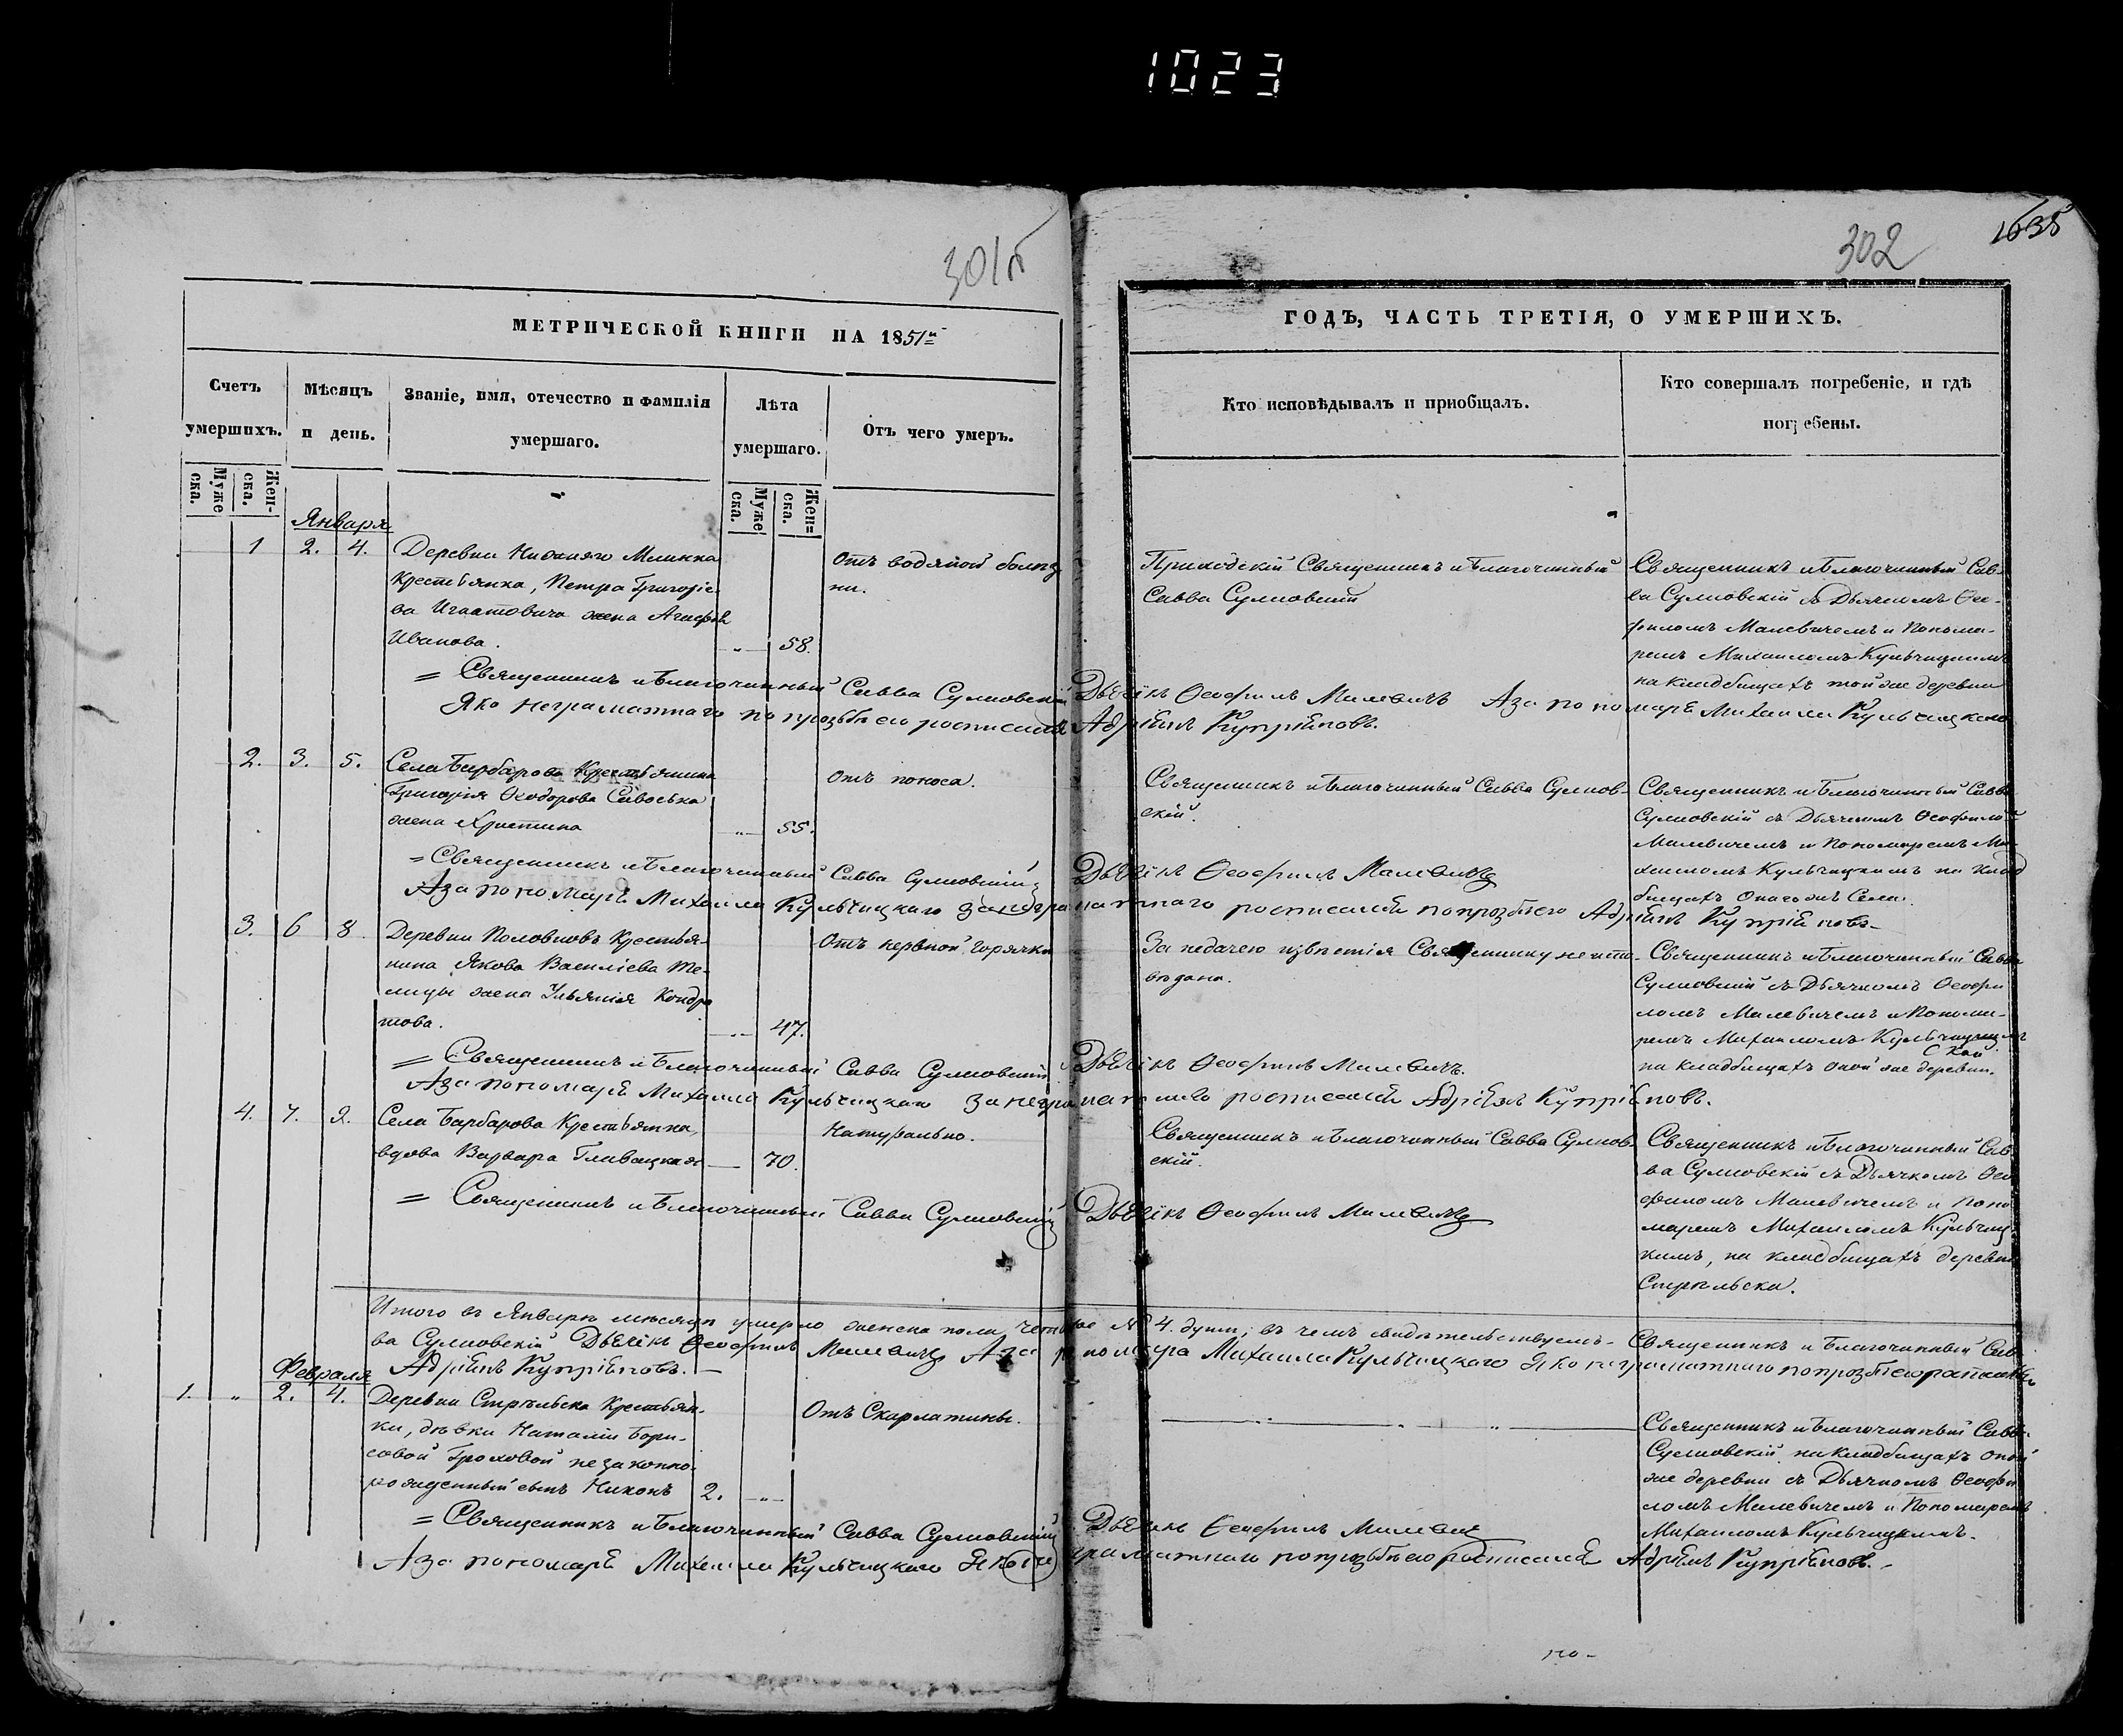 1023
301б
302
1635
МЕТРИЧЕСКОЙ КНИГИ НА 1851й
ГОДЪ, ЧАСТЬ ТРЕТІЯ, О УМЕРШИХЪ.
Счетъ умершихъ.
Мѣсяцъ и день.
Званіе, имя, отечество и фамилія умершаго.
Лѣта умершаго.
Отъ чего умеръ.
Кто исповѣдывалъ и пріобщалъ.
Кто совершалъ погребеніе, и гдѣ погребены.
Муже ска.
Жен- ска.
Муже ска.
Жен= ска.
Января
1 2. 4.
Деревни Нижняго Млинка
Крестьянка, Петра Григоріе-
ва Игнатовича жена Агафія
Иванова. „ 58.
Отъ водяной болѣз
ни.
Приходскій Священникъ и Благочинный
Савва Сулковскій
Священникъ и Благочинный Сав-
ва Сулковскій съ Дьячкомъ Ѳео-
филомъ Малевичемъ и Понома-
ремъ Михаиломъ Кульчицкимъ
на кладбищахъ той же деревни
= Священникъ и Благочинный Савва Сулковскій Дьячекъ Ѳеофилъ Малевичъ А за пономаря Михаила Кульчицкаго
Яко неграматнаго по прозьбѣ его росписался Адріанъ Купріяновъ.
2. 3. 5.
Села Барбарова Крестьянина
Григорія Ѳеодорова Савоська
жена Христина „ 55.
Отъ поноса.
Священникъ и Благочинный Савва Сулков-
скій.
Священникъ и Благочинный Савва
Сулковскій съ Дьячкомъ Ѳеофиломъ
Малевичемъ и Пономаремъ Ми-
хаиломъ Кульчицкимъ на клад
бищахъ онагожъ Села.
= Священникъ и Благочинный Савва Сулковскій Дьячекъ Ѳеофилъ Малевичъ
А за пономаря Михаила Кульчицкаго за неграматнаго росписался по прозьбѣ его Адріанъ Купріяновъ
3. 6 8.
Деревни Половковъ Крестья-
нина Якова Василіева Те-
лицы жена Ульянія Кондра
това. 47.
Отъ нервной горячки
За недачею извѣстія Священнику не испо-
вѣдана.
Священникъ и Благочинный Савва
Сулковскій съ Дьячкомъ Ѳеофи
ломъ Малевичемъ и Понома-
ремъ Михаиломъ Кульчицкимъ
на кладбищахъ оной же деревни.
= Священникъ и Благочинный Савва Сулковскій Дьячекъ Ѳеофилъ Малевичъ.
А за пономаря Михаила Кульчицкаго за неграматнаго росписался Адріанъ Купріяновъ.
4. 7. 9.
Села Барбарова Крестьянка,
вдова Варвара Гливацкая 70.
Натурально.
Священникъ и Благочинный Савва Сулков-
скій.
Священникъ и Благочинный Сав-
ва Сулковскій съ Дьячкомъ Ѳео
филомъ Малевичемъ и Поно
маремъ Михаиломъ Кульчиц-
кимъ, на кладбищахъ деревни
Стрѣльска.
= Священникъ и Благочинный Савва Сулковскій Дьячекъ Ѳеофилъ Малевичъ
Итого въ Январѣ мѣсяцѣ умерло женска пола четыре № 4. души; въ чемъ свидѣтельствуемъ- Священникъ и Благочинный Сав-
ва Сулковскій Дьячекъ Ѳеофилъ Малевичъ А за пономара Михаила Кульчицкаго Яко неграматнаго по прозьбѣ его
Адріанъ Купріяновъ.
Февраля
1. „ 2. 4.
Деревни Стрѣльска Крестьян-
ки, дѣвки Наталіи Бори-
совой Гроховой незаконно-
рожденный сынъ Никонъ 2. „
Отъ Скарлатины.
Священникъ и Благочинный Савва
Сулковскій на кладбищахъ оной
же деревни съ Дьячкомъ Ѳеофи
ломъ Малевичемъ и Пономаремъ
Михаиломъ Кульчицкимъ.
= Священникъ и Благочинный Савва Сулковскій Дьячекъ Ѳеофилъ Малевичъ
А за пономаря Михаила Кульчицкаго Яко неграматнаго по прозьбѣ его росписался Адріанъ Купріяновъ.
по-